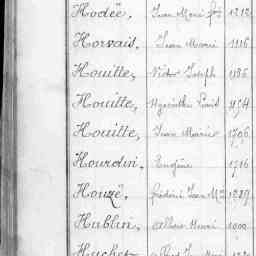 Hodée, Jean Marie fçs 1212
Horvail, Jean Marie 1116
Houitte, Victor Joseph 1186
Houitte, Hyacinthe Louis 1154
Houitte, Jean Marie 1706
Hourdin, Eugène 1716
Houzé, Frédéric Jean Mie 1289
Hublin, Albert Henri 1000
Huchet